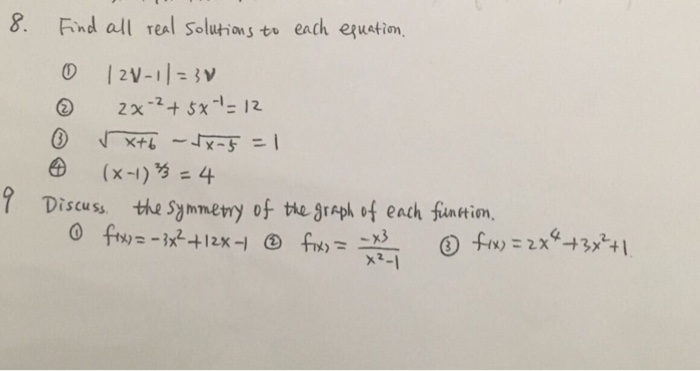 8. Find all real solutions to each equation.
① |2v-1| = 3v
② 2x⁻² + 5x⁻¹ = 12
③ √x+6 - √x-5 = 1
④ (x-1)^2/3 = 4
9 Discuss. the symmetry of the graph of each function.
① f(x) = -3x²+12x-1 ② f(x) = -x3/x²-1 ③ f(x) = 2x⁴+3x²+1.